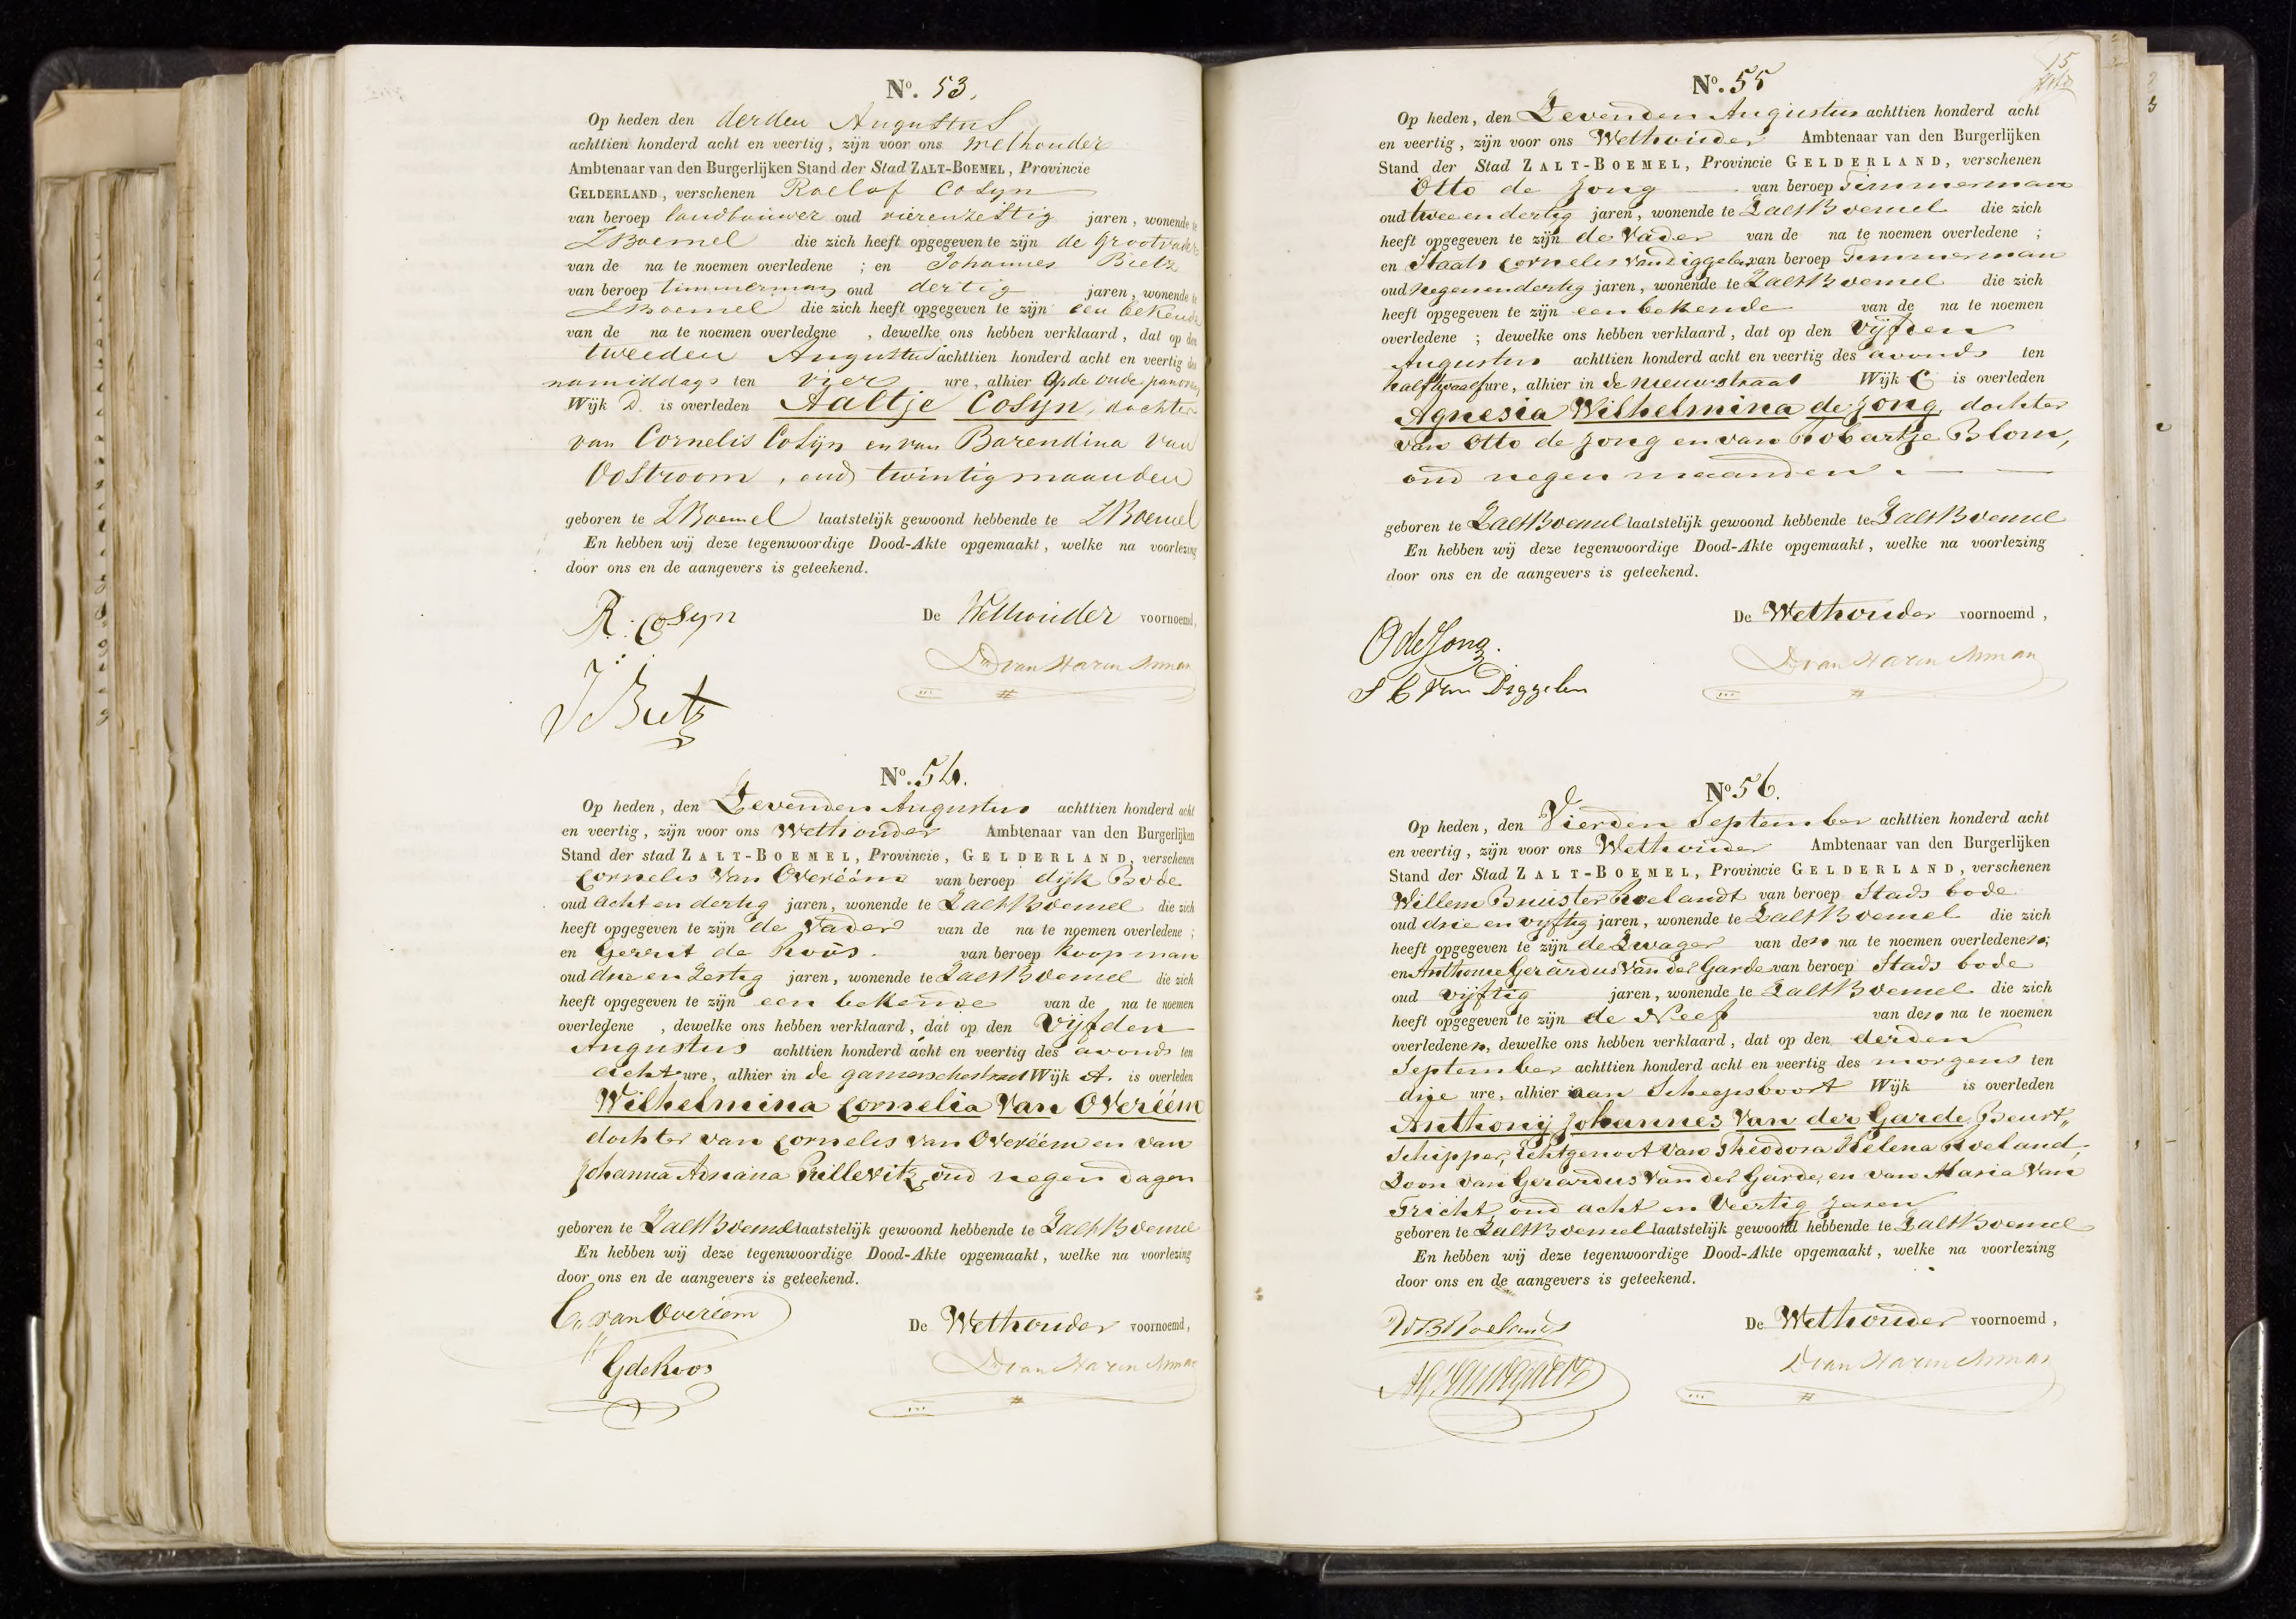 No. 53.
Op heden den derden Augustus
achttien honderd acht en veertig, zijn voor ons wethouder
Ambtenaar van den Burgerlijken Stand der Stad ZALT-BOEMEL, Provincie
GELDERLAND, verschenen Roelof Cosyn
van beroep landbouwer oud vierenzestig jaren, wonende te
ZBoemel die zich heeft opgegeven te zijn de Grootvader
van de na te noemen overledene ; en Johannes
van beroep timmerman oud dertig jaren, wonende te
ZBoemel die zich heeft opgegeven te zijn een bekende
van de na te noemen overledene , dewelke ons hebben verklaard, dat op den
tweeden Augustus achttien honderd acht en veertig des
namiddags ten vier ure, alhier op de oude
Wijk D. is overleden Aaltje Cosyn, dochter
van Cornelis Cosijn en van Barendina van
Oostroom, oud twintig maanden
geboren te ZBoemel laatstelijk gewoond hebbende te ZBoemel
En hebben wij deze tegenwoordige Dood-Akte opgemaakt, welke na voorlezing
door ons en de aangevers is geteekend.
R. Cosyn
De Wethouder voornoemd,
D van Haren
No. 54.
Op heden, den Zevenden Augustus achttien honderd acht
en veertig, zijn voor ons Wethouder Ambtenaar van den Burgerlijken
Stand der stad ZALT-BOEMEL, Provincie, GELDERLAND, verschenen
Cornelis Van Overéém van beroep dijk Bode
oud acht en dertig jaren, wonende te ZaltBoemel die zich
heeft opgegeven te zijn de Vader van de na te noemen overledene ;
en Gerrit de Roos. van beroep Koopman
oud drie en Zestig jaren, wonende te ZaltBoemel die zich
heeft opgegeven te zijn een bekende van de na te noemen
overledene , dewelke ons hebben verklaard, dat op den Vijfden
Augustus achttien honderd acht en veertig des avonds ten
acht ure, alhier in de gamerschestraat Wijk A. is overleden
Wilhelmina Cornelia Van Overéém
dochter van Cornelis van Overéém en van
Johanna Adriana Prillevitz, oud negen dagen
geboren te ZaltBoemel laatstelijk gewoond hebbende te ZaltBoemel
En hebben wij deze tegenwoordige Dood-Akte opgemaakt, welke na voorlezing
door ons en de aangevers is geteekend.
C. van Overéem
De Wethouder voornoemd,
G de Roos
D van Haren
15
No. 55
Op heden, den Zevenden Augustus achttien honderd acht
en veertig, zijn voor ons Wethouder Ambtenaar van den Burgerlijken
Stand der Stad ZALT-BOEMEL, Provincie GELDERLAND, verschenen
Otto de Jong van beroep Timmerman
oud twee en dertig jaren, wonende te ZaltBoemel die zich
heeft opgegeven te zijn de Vader van de na te noemen overledene ;
en Staats Cornelis van Diggelen van beroep Timmerman
oud Negen en dertig jaren, wonende te ZaltBoemel die zich
heeft opgegeven te zijn een bekende van de na te noemen
overledene ; dewelke ons hebben verklaard, dat op den Vijfden
Augustus achttien honderd acht en veertig des avonds ten
half twaalf ure, alhier in de Nieuwstraat Wijk C is overleden
Agnesia Wilhelmina de Jong, dochter
van Otto de Jong en van Robartje Blom,
oud negen maanden.
geboren te ZaltBoemel laatstelijk gewoond hebbende te ZaltBoemel
En hebben wij deze tegenwoordige Dood-Akte opgemaakt, welke na voorlezing
door ons en de aangevers is geteekend.
De Wethouder voornoemd,
O de Jong.
D van Haren
S C Van Diggelen
No 56.
Op heden, den Vierden September achttien honderd acht
en veertig, zijn voor ons Wethouder Ambtenaar van den Burgerlijken
Stand der Stad ZALT-BOEMEL, Provincie GELDERLAND, verschenen
Willem Buister Roelandt van beroep Stads bode
oud drie en vyftig jaren, wonende te ZaltBoemel die zich
heeft opgegeven te zijn de Zwager van den na te noemen overledenen;
en Anthonie Gerardus Van der Garde van beroep Stads bode
oud vijftig jaren, wonende te ZaltBoemel die zich
heeft opgegeven te zijn de Neef van den na te noemen
overledenen, dewelke ons hebben verklaard, dat op den derden
September achttien honderd acht en veertig des morgens ten
drie ure, alhier aan Scheepsboort Wijk is overleden
Anthonij Johannes Van der Garde, Beurt„
Schipper, Echtgenoot van Theodora Helena Roeland,
Zoon van Gerardus Van der Garde, en van Maria Van
Tricht, oud acht en Veertig jaren
geboren te ZaltBoemel laatstelijk gewoond hebbende te ZaltBoemel
En hebben wij deze tegenwoordige Dood-Akte opgemaakt, welke na voorlezing
door ons en de aangevers is geteekend.
De Wethouder voornoemd,
D van Haren